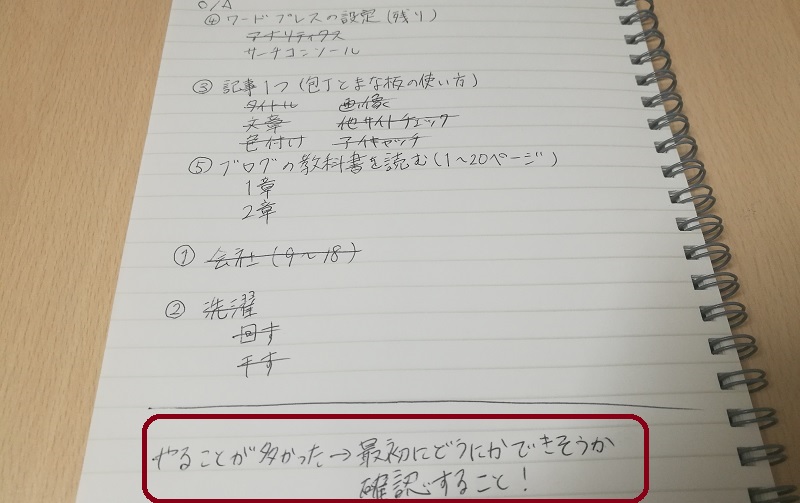 ④ワードプレスの設定(残り)
アナリティクス
サーチコンソール
③記事1つ(包丁とまな板の使い方)
タイトル 画像
文章 他サイトチェック
色付け 子イキャッチ
⑤ブログの教科書を読む(1〜20ページ)
1章
2章
①会社(9〜18)
②洗濯
回す
干す
やることが多かった→最初にどうにかできそうか
確認すること!